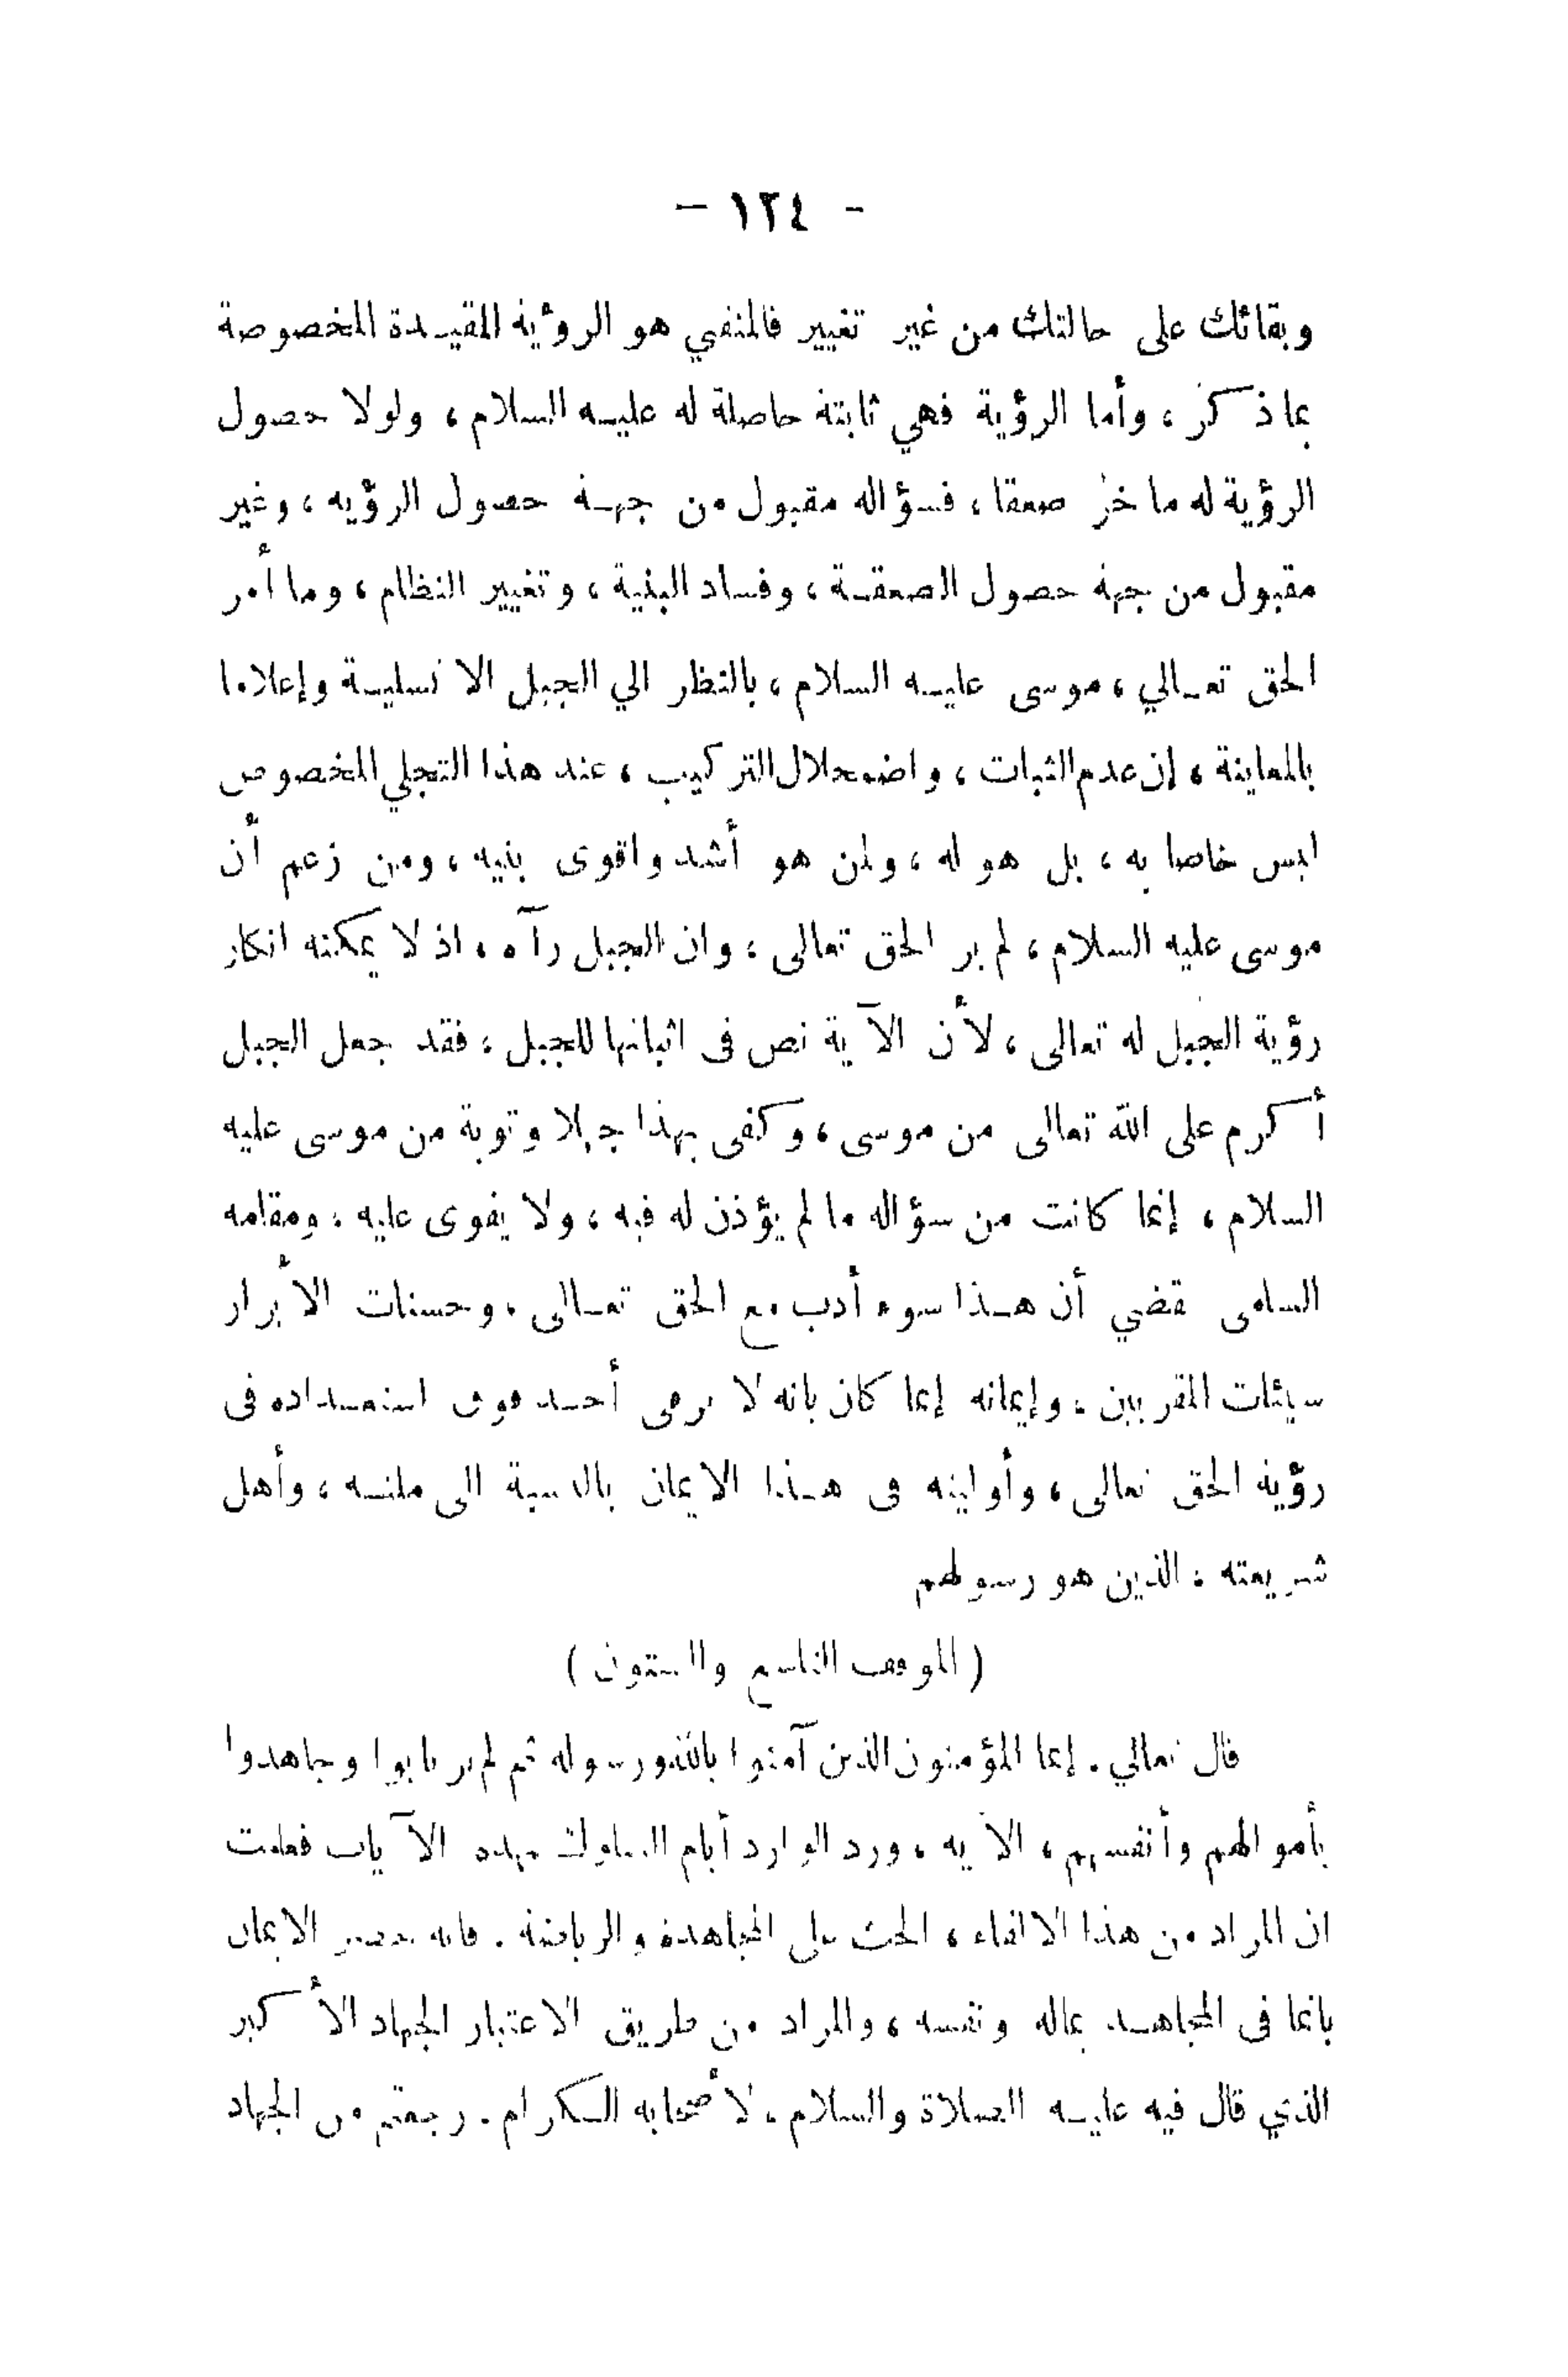 - ١٢٤ -
وبقائك على حالتك من غير تغيير فالمنفي هو الرؤية المقيدة المخصوصة
بما ذكر ، وأما الرؤية فهي ثابتة حاصلة له عليه السلام ، ولولا حصول
الرؤية له ما خر صعقا ، فسؤاله مقبول من جهة حصول الرؤيه ، وغير
مقبول من جهة حصول الصعقة ، وفساد البنية ، وتغيير النظام ، وما أمر
الحق تعالي ، موسى عليه السلام ، بالنظر الي الجبل الا تسلية وإعلاما
بالمعاينة ، إن عدم الثبات ، واضمحلال التركيب ، عند هذا التجلي المخصوص
ليس خاصا به ، بل هو له ، ولمن هو أشد واقوى بنيه ، ومن زعم أن
موسى عليه السلام ، لم ير الحق تعالى ، وان الجبل رآه ، اذ لا يمكنه انكار
رؤية الجبل له تعالى ، لأن الآية نص فى اثباتها للجبل ، فقد جعل الجبل
أكرم على الله تعالى من موسى ، وكفى بهذا جهلا وتوبة من موسى عليه
السلام ، إنما كانت من سؤاله ما لم يؤذن له فيه ، ولا يقوى عليه ، ومقامه
السامى قضي أن هذا سوء أدب مع الحق تعالى ، وحسنات الأبرار
سيئات المقربين ، وإيمانه إنما كان بانه لا يرى أحد فوق استعداده فى
رؤية الحق تعالى ، وأوليته فى هذا الايمان بالنسبة الى ملته ، وأهل
شريعته ، الذين هو رسولهم
( الموقف التاسع والستون )
قال تعالي . إنما المؤمنون الذين آمنوا بالله ورسوله ثم لم يرتابوا وجاهدوا
بأموالهم وأنفسهم ، الآيه ، ورد الوارد أيام السلوك بهذه الآيات فعلمت
ان المراد من هذا الالقاء ، الحث على المجاهدة والرياضة . فانه حصر الايمان
بانما فى المجاهد بماله ونفسه ، والمراد من طريق الاعتبار الجهاد الأكبر
الذي قال فيه عليه الصلاة والسلام ، لأصحابه الكرام . رجعتم من الجهاد